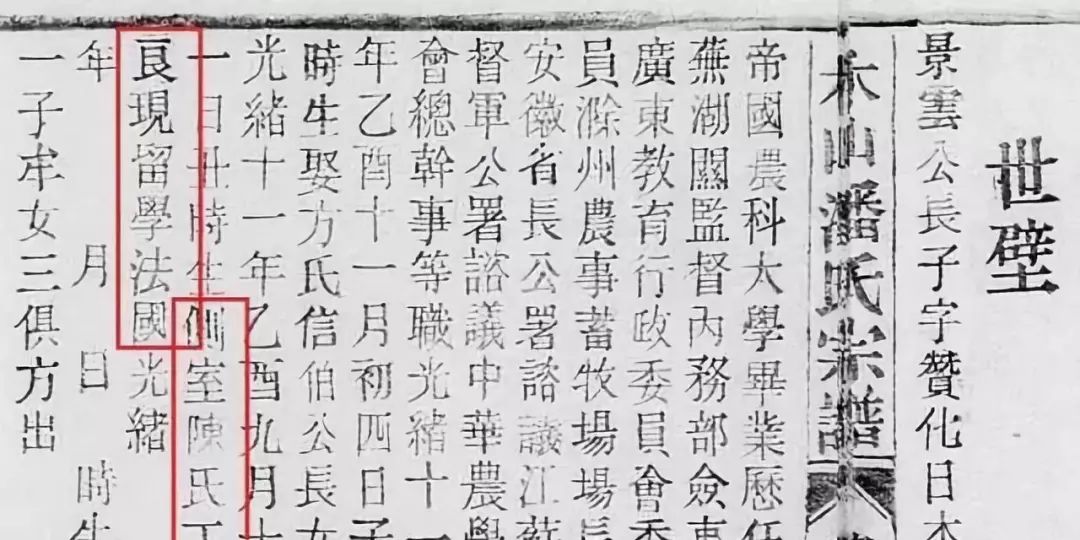 世璧
景雲公長子字贊化日本
木山潘氏宗譜
帝國農科大學畢業歷任
蕪湖關監督內務部僉事
廣東教育行政委員會委
員滁州農事畜牧場場長
安徽省長公署諮議江蘇
督軍公署諮議中華農學
會總幹事等職光緒十一
年乙酉十一月初四日子
時生娶方氏信伯公長女
光緒十一年乙酉九月十
一日丑時生側室陳氏
良現留學法國光緒
年 月 日 時生
一子牟女三俱方出